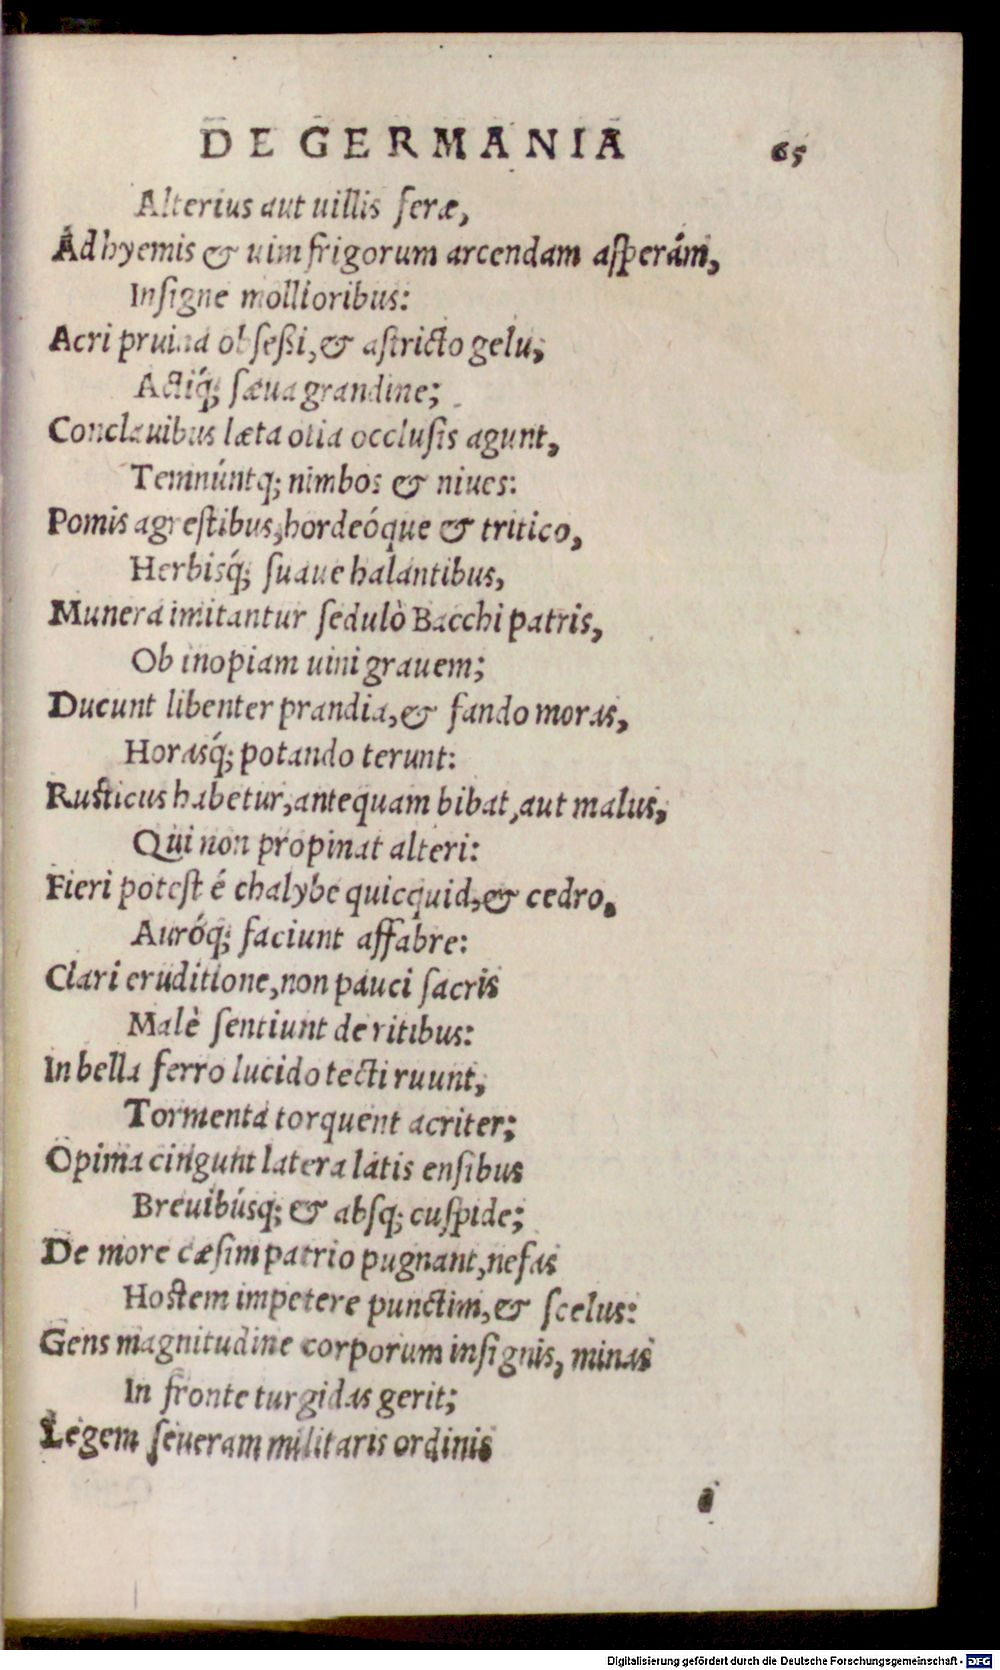 DE GERMANIA 65
Alterius aut uillis feræ,
Ad hyemis & uim frigorum arcendam asperám,
Insigne mollioribus:
Acri pruina obseßi, & astricto gelu,
Actiq́; sæua grandine;
Conclauibus læta otia occlusis agunt,
Temnúntq; nimbos & niues:
Pomis agrestibus, hordeóque & tritico,
Herbisq́; suaue halantibus,
Munera imitantur sedulò Bacchi patris,
Ob inopiam uini grauem;
Ducunt libenter prandia, & fando moras,
Horasq́; potando terunt:
Rusticus habetur, antequam bibat, aut malus,
Qui non propinat alteri:
Fieri potest é chalybe quicquid, & cedro,
Auróq; faciunt affabre:
Clari eruditione, non pauci sacris
Malè sentiunt de ritibus:
In bella ferro lucido tecti ruunt,
Tormenta torquent acriter;
Opima cingunt latera latis ensibus
Breuibúsq; & absq; cuspide;
De more cæsim patrio pugnant, nefas
Hostem impetere punctim, & scelus:
Gens magnitudine corporum insignis, minas
In fronte turgidas gerit;
Legem seueram militaris ordinis
Digitalisierung gefördert durch die Deutsche Forschungsgemeinschaft - DFG